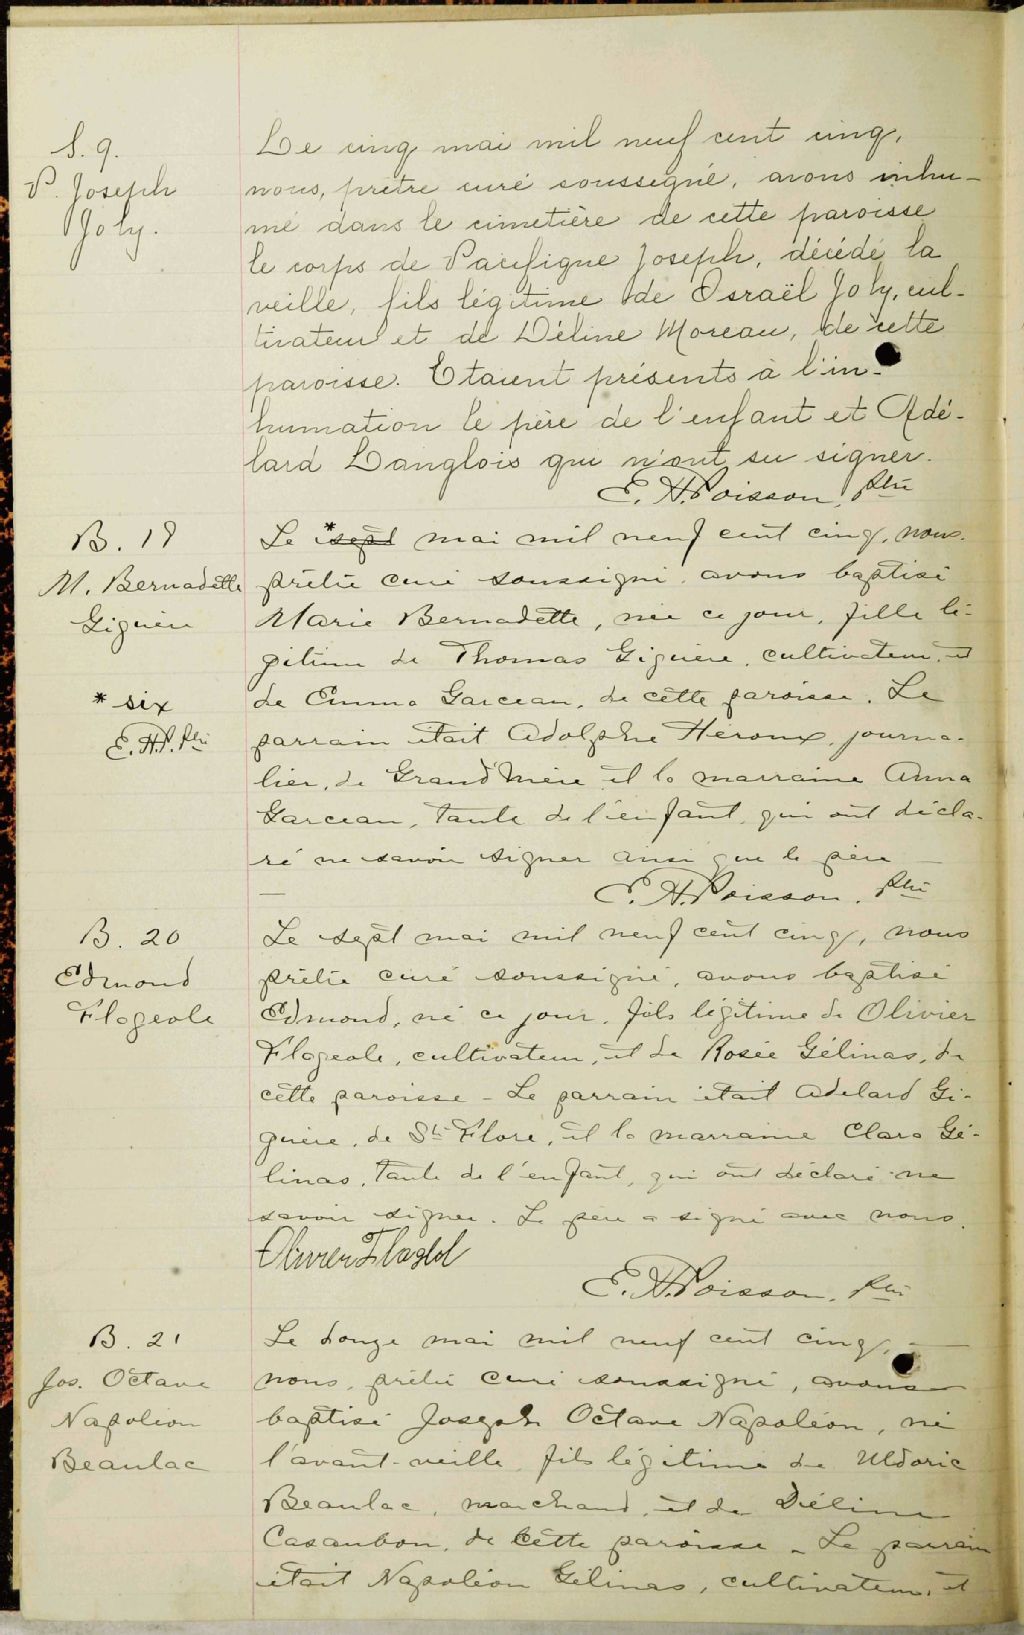 S. 9.
P. Joseph
Joly.
Le cinq mai mil neuf cent cinq,
nous, prêtre curé soussigné, avons inhu-
mé dans le cimetière de cette paroisse
le corps de Pacifique Joseph, décédé la
veille, fils légitime de Israël Joly, cul-
tivateur et de Déline Moreau, de cette
paroisse. Etaient présents à l'in-
humation le père de l'enfant et Adé-
lard Langlois qui n'ont su signer.
E. H. Poisson, Ptre
B. 19
M. Bernadette
Giguère
* six
E. H. P. Ptre
Le * sept mai mil neuf cent cinq, nous
prêtre curé soussigné, avons baptisé
Marie Bernadette, née ce jour, fille lé-
gitime de Thomas Giguère, cultivateur, et
de Emma Garceau, de cette paroisse. Le
parrain était Adolphe Héroux, journa-
lier, de Grand'Mère et la marraine Anna
Garceau, tante de l'enfant, qui ont décla-
ré ne savoir signer ainsi que le père
E. H. Poisson, Ptre
B. 20
Edmond
Flageole
Le sept mai mil neuf cent cinq, nous
prêtre curé soussigné, avons baptisé
Edmond, né ce jour, fils légitime de Olivier
Flageole, cultivateur, et de Rosée Gélinas, de
cette paroisse - Le parrain était Adelard Gi-
guère, de Ste Flore, et la marraine Clara Gé-
linas, tante de l'enfant, qui ont déclaré ne
savoir signer. Le père a signé avec nous.
Olivier Flagol
E. H. Poisson, Ptre
B. 21
Jos. Octave
Napoléon
Beaulac
Le douze mai mil neuf cent cinq,
nous, prêtre curé soussigné, avons
baptisé Joseph Octave Napoléon, né
l'avant-veille, fils légitime de Uldoric
Beaulac, marchand, et de Déline
Casaubon, de cette paroisse - Le parrain
était Napoléon Gélinas, cultivateur, et